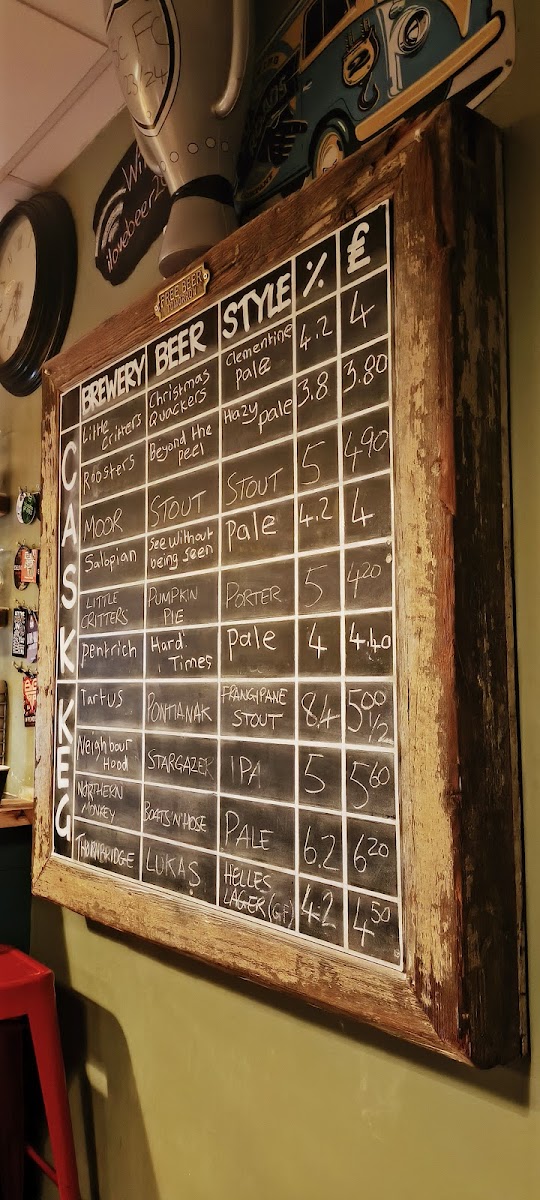 C FC
23/24
ilovebeer2
FREE BEER
TOMORROW
BREWERY BEER STYLE % £
CASK
Little Critters Christmas Quackers Clementine Pale 4.2 4
Roosters Beyond the peel Hazy pale 3.8 3.80
MOOR STOUT STOUT 5 4.90
Salopian See Without being seen Pale 4.2 4
LITTLE CRITTERS PUMPKIN PIE PORTER 5 4.20
Pentrich Hard Times Pale 4 4.40
KEG
Tartus PONTIANAK FRANGIPANE STOUT 8.4 5.00 1/2
Neighbour Hood STARGAZER IPA 5 5.60
NORTHERN MONKEY BOATS'N'HOSE PALE 6.2 6.20
THORNBRIDGE LUKAS HELLES LAGER (GF) 4.2 4.50